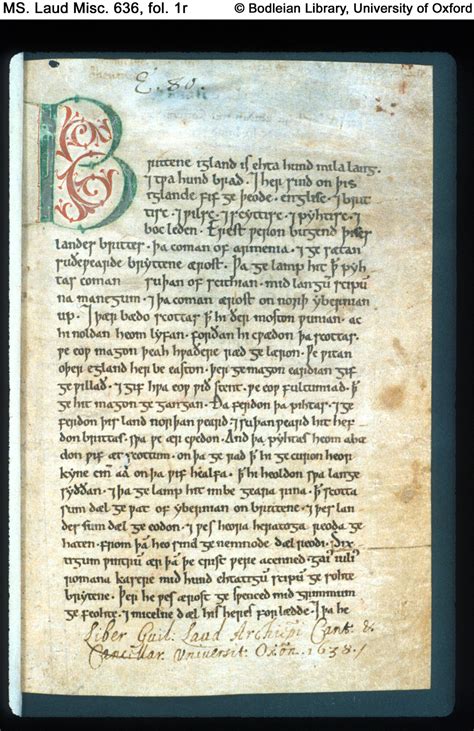 MS. Laud Misc. 636, fol. 1r
© Bodleian Library, University of Oxford
E. 80.
Brittene igland is ehta hund mila lang.
⁊ tƿa hund brad. ⁊ her sind on þis
iglande fif geþeode. englisc. ⁊ brit
tisc. ⁊ ƿilsc. ⁊ scyttisc. ⁊ pyhtisc. ⁊
boc leden. Erest ƿeron bugend þises
landes brittes. þa coman of armenia. ⁊ gesætan
suðeƿearde bryttene ærost. Þa gelamp hit þ̄ pyh
tas coman suþan of scithian. mid langū scipū
na manegum. ⁊ þa coman ærost on norþ ybernian
up. ⁊ þær bædo scottas þ̄ hi ðer moston ƿunian. ac
hi noldan heom lyfan. forðan hi cƿædon þa scottas.
ƿe eoƿ magon þeah hƿaðere ræd gelæron. Ƿe ƿitan
oþer egland her be easton. þer ge magon eardian gif
ge ƿillað. ⁊ gif hƿa eoƿ ƿið stent. ƿe eoƿ fultumiað. þ̄
ge hit magon gegangan. Ða ferdon þa pihtas. ⁊ ge
ferdon þis land norþanƿeard. ⁊ suþanƿeard hit hef
don brittas. sƿa ƿe ær cƿedon. And þa pyhtas heom abæ
don ƿif æt scottum. on þa gerad þ̄ hi gecuron heora
kyne cinn aa on þa ƿif healfa. þ̄ hi heoldon sƿa lange
syððan. ⁊ þa gelamp hit imbe geara rina. þ̄ scotta
sum dæl geƿat of ybernian on brittene. ⁊ þes lan
des sum dæl geeodon. ⁊ ƿes heora heratoga reoda ge
haten. from þā heo sind genemnode dæl reodi. Six
tigum ƿintrū ær þā þe crist ƿere acenned. gaiꝰ iuliꝰ
romana kasere mid hund ehtatigū scipū gesohte
brytene. Þer he ƿes ærost gesƿenced mid grimmum
gefeohte. ⁊ micelne dæl his heres forlædde. ⁊ þa he
Liber Guil. Laud Archiepi Cant. &
Cancellar. Universit. Oxōn. 1638.